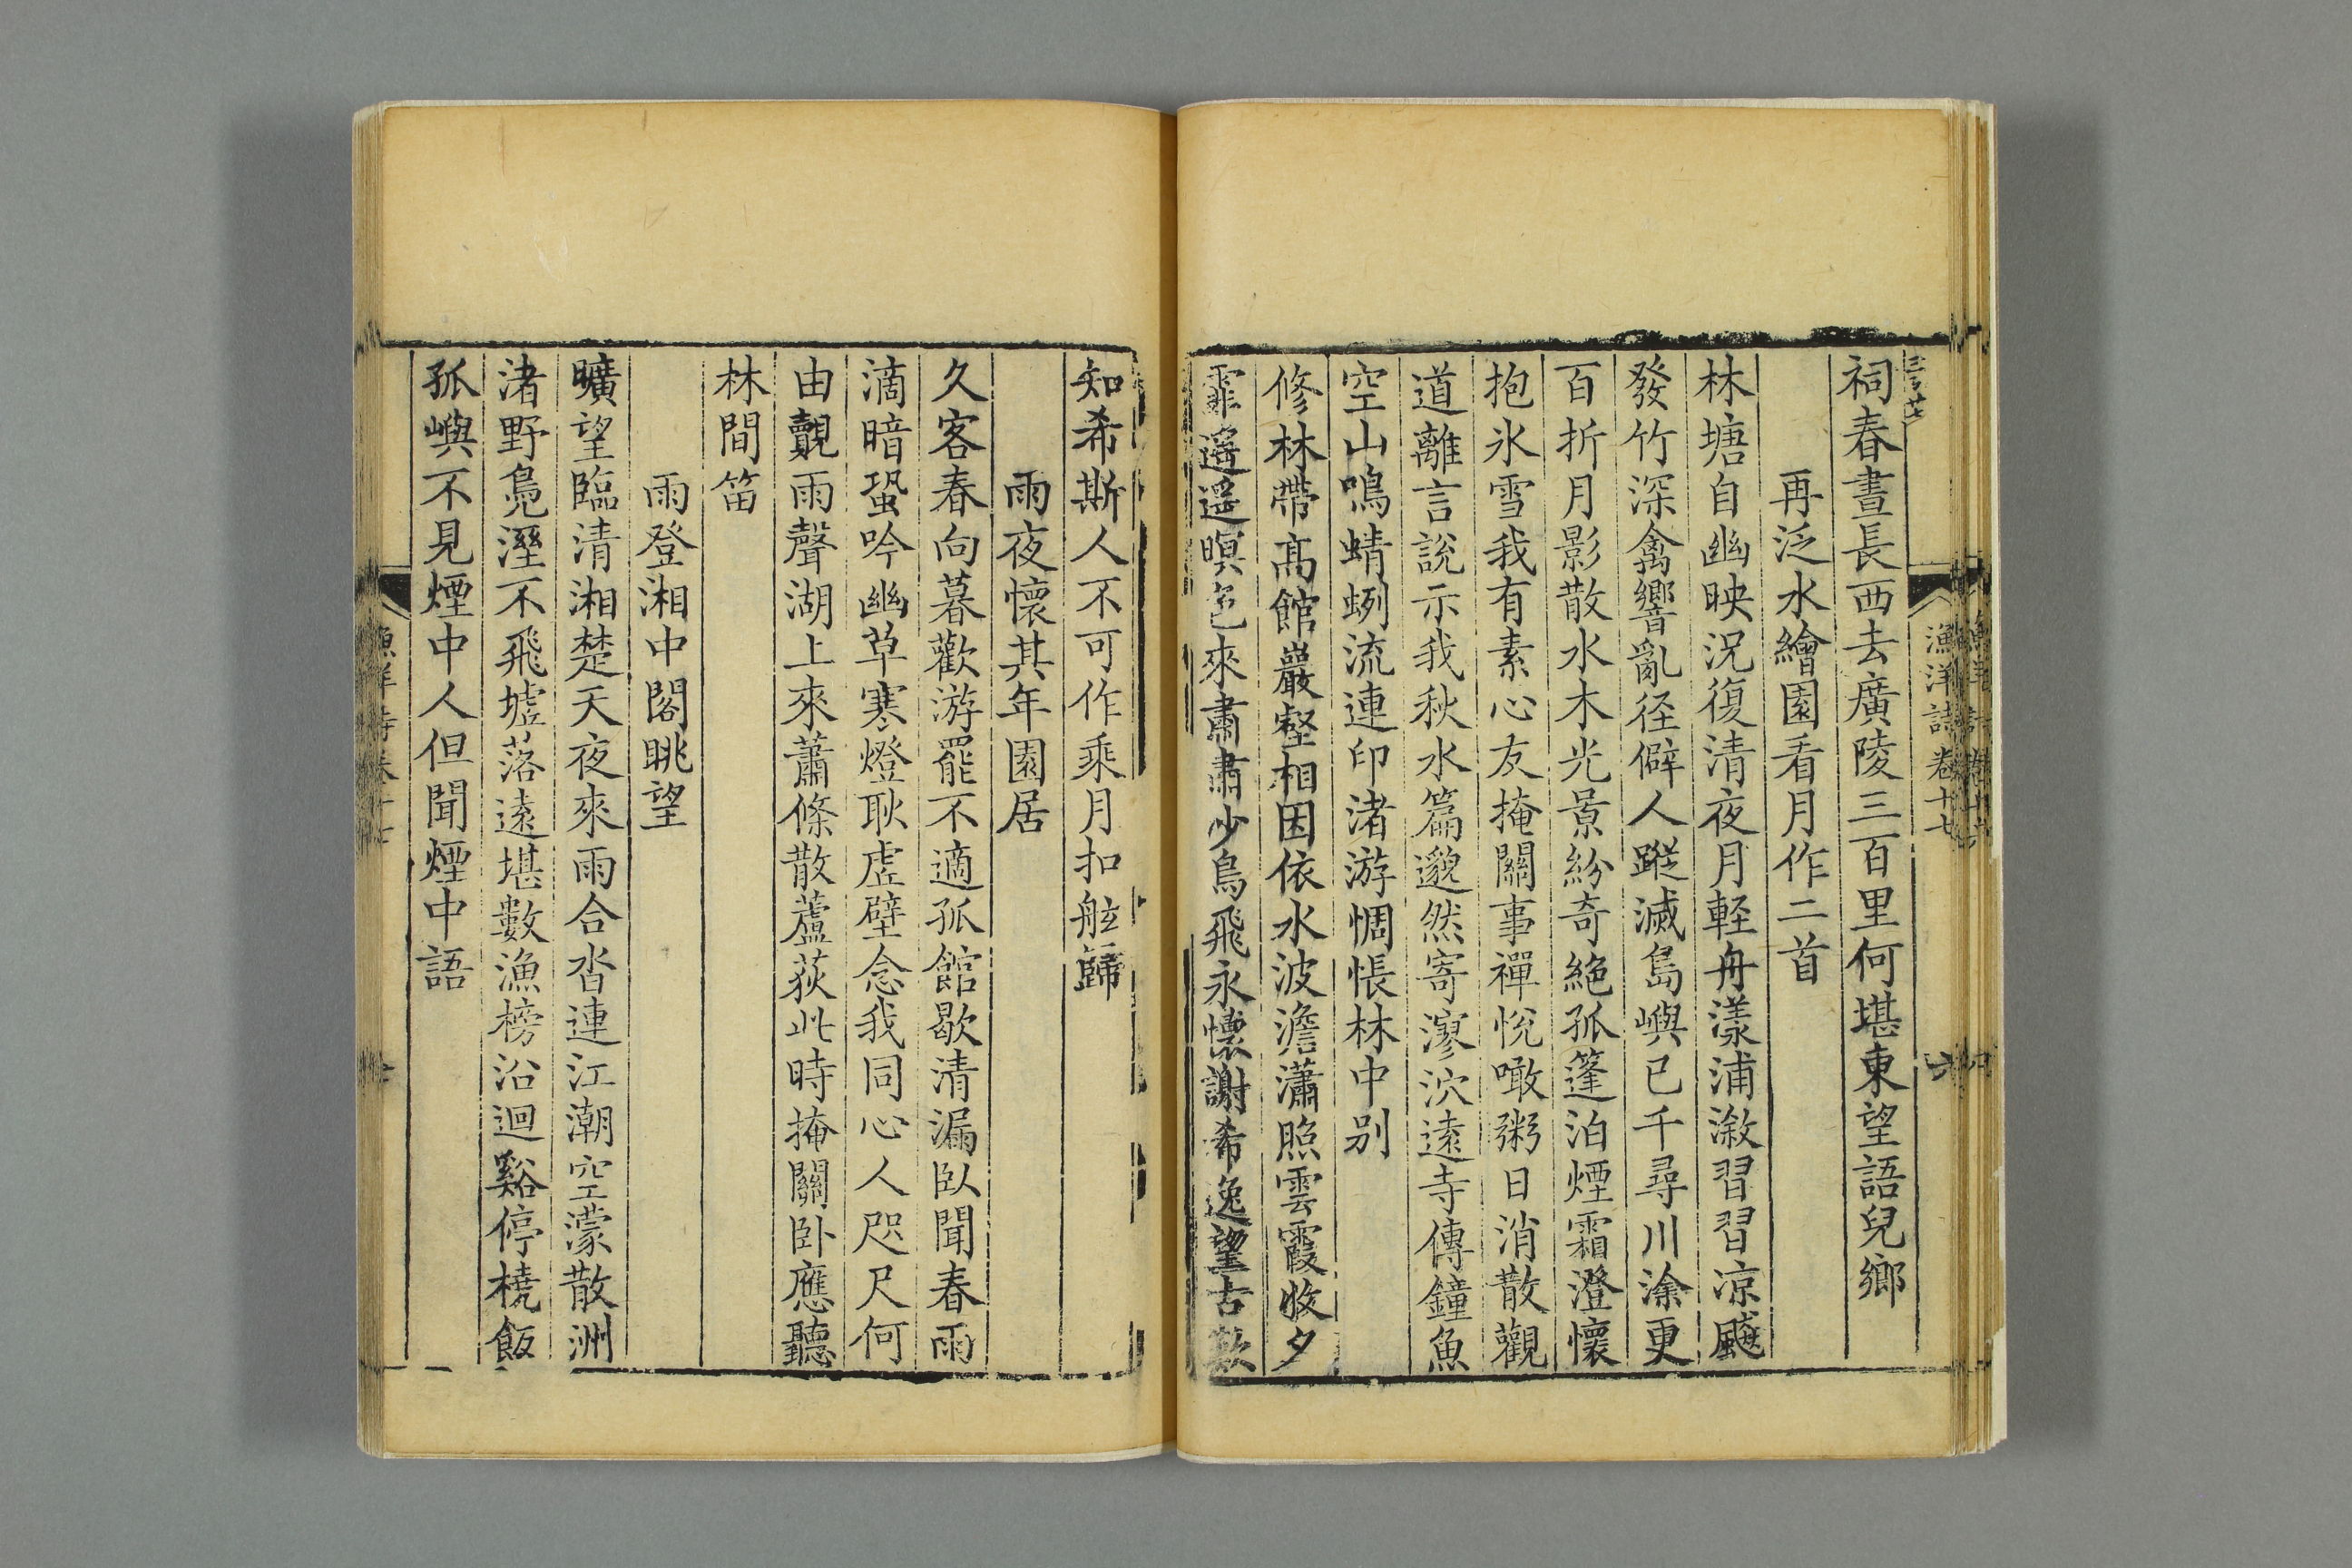 祠春晝長西去廣陵三百里何堪東望語兒鄉
再泛水繪園看月作二首
林塘自幽映況復清夜月輕舟漾浦溆習習凉飈
發竹深禽響亂徑僻人蹤滅島嶼已千尋川涂更
百折月影散水木光景紛奇絶孤篷泊煙霜澄懷
抱氷雪我有素心友掩關事禪悅噉粥日消散觀
道離言說示我秋水篇邈然寄漻泬遠寺傳鐘魚
空山鳴蜻蛚流連印渚游惆悵林中别
修林帶高館巖壑相因依水波澹瀟照雲霞收夕
霏遥遥暝色來肅肅少鳥飛永懷謝希逸望古歎
知希斯人不可作乘月扣舷歸
雨夜懷其年園居
久客春向暮歡游罷不適孤館歇清漏臥聞春雨
滴暗蛩吟幽草寒燈耿虛壁念我同心人咫尺何
由覿雨聲湖上來蕭條散蘆荻此時掩關卧應聽
林間笛
雨登湘中閣眺望
曠望臨清湘楚天夜來雨合沓連江潮空濛散洲
渚野鳧溼不飛墟落遠堪數漁榜沿迴谿停橈飯
孤嶼不見煙中人但聞煙中語
漁洋詩卷十七
六
漁洋詩卷十七